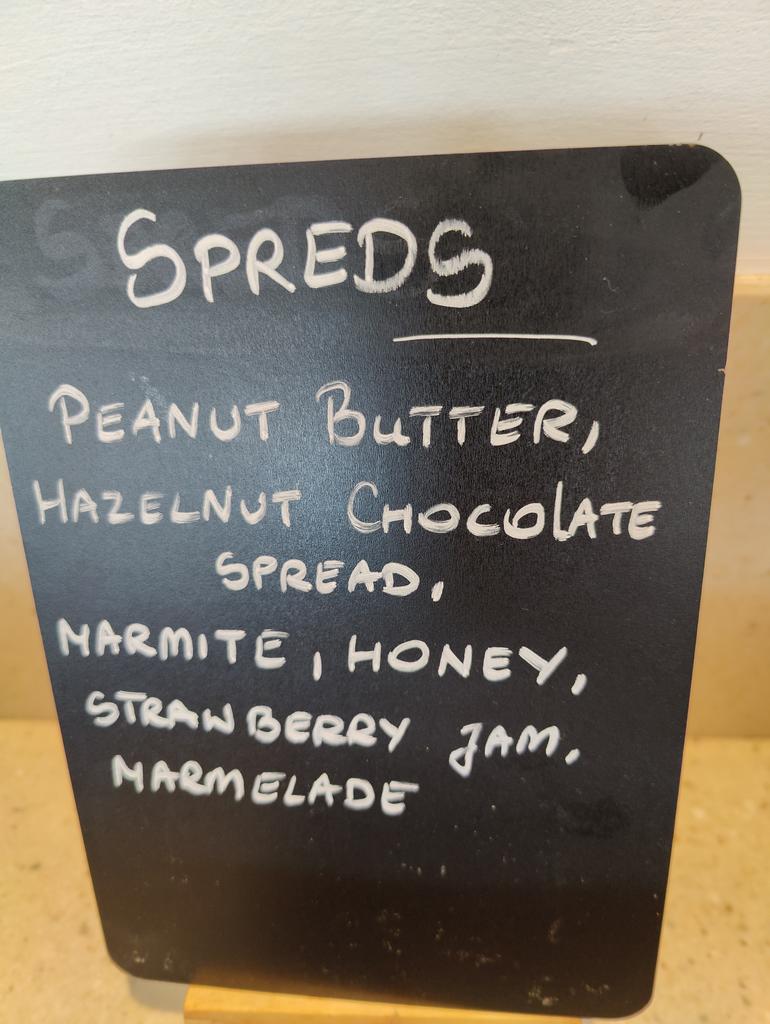 SPREDS
PEANUT BUTTER,
HAZELNUT CHOCOLATE
SPREAD,
MARMITE, HONEY,
STRAWBERRY JAM,
MARMELADE